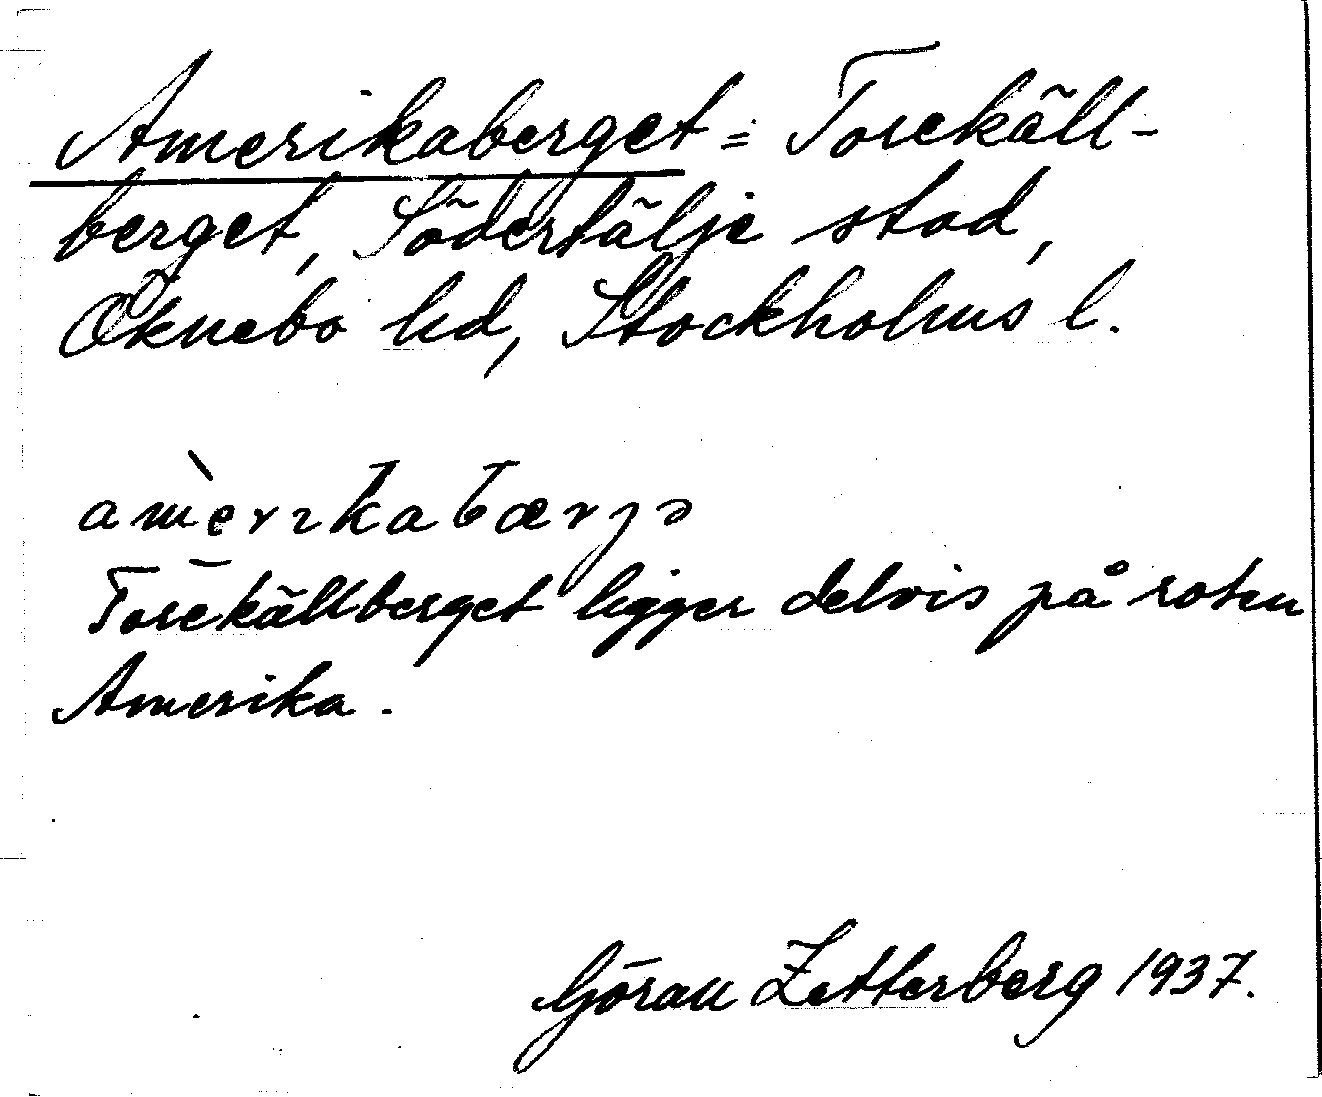 Amerikaberget = Torekäll-
berget, Södertälje stad,
Öknebo hd, Stockholms l.
amèrıkabærjə
Torekällberget ligger delvis på roten
Amerika.
Göran Zetterberg 1937.